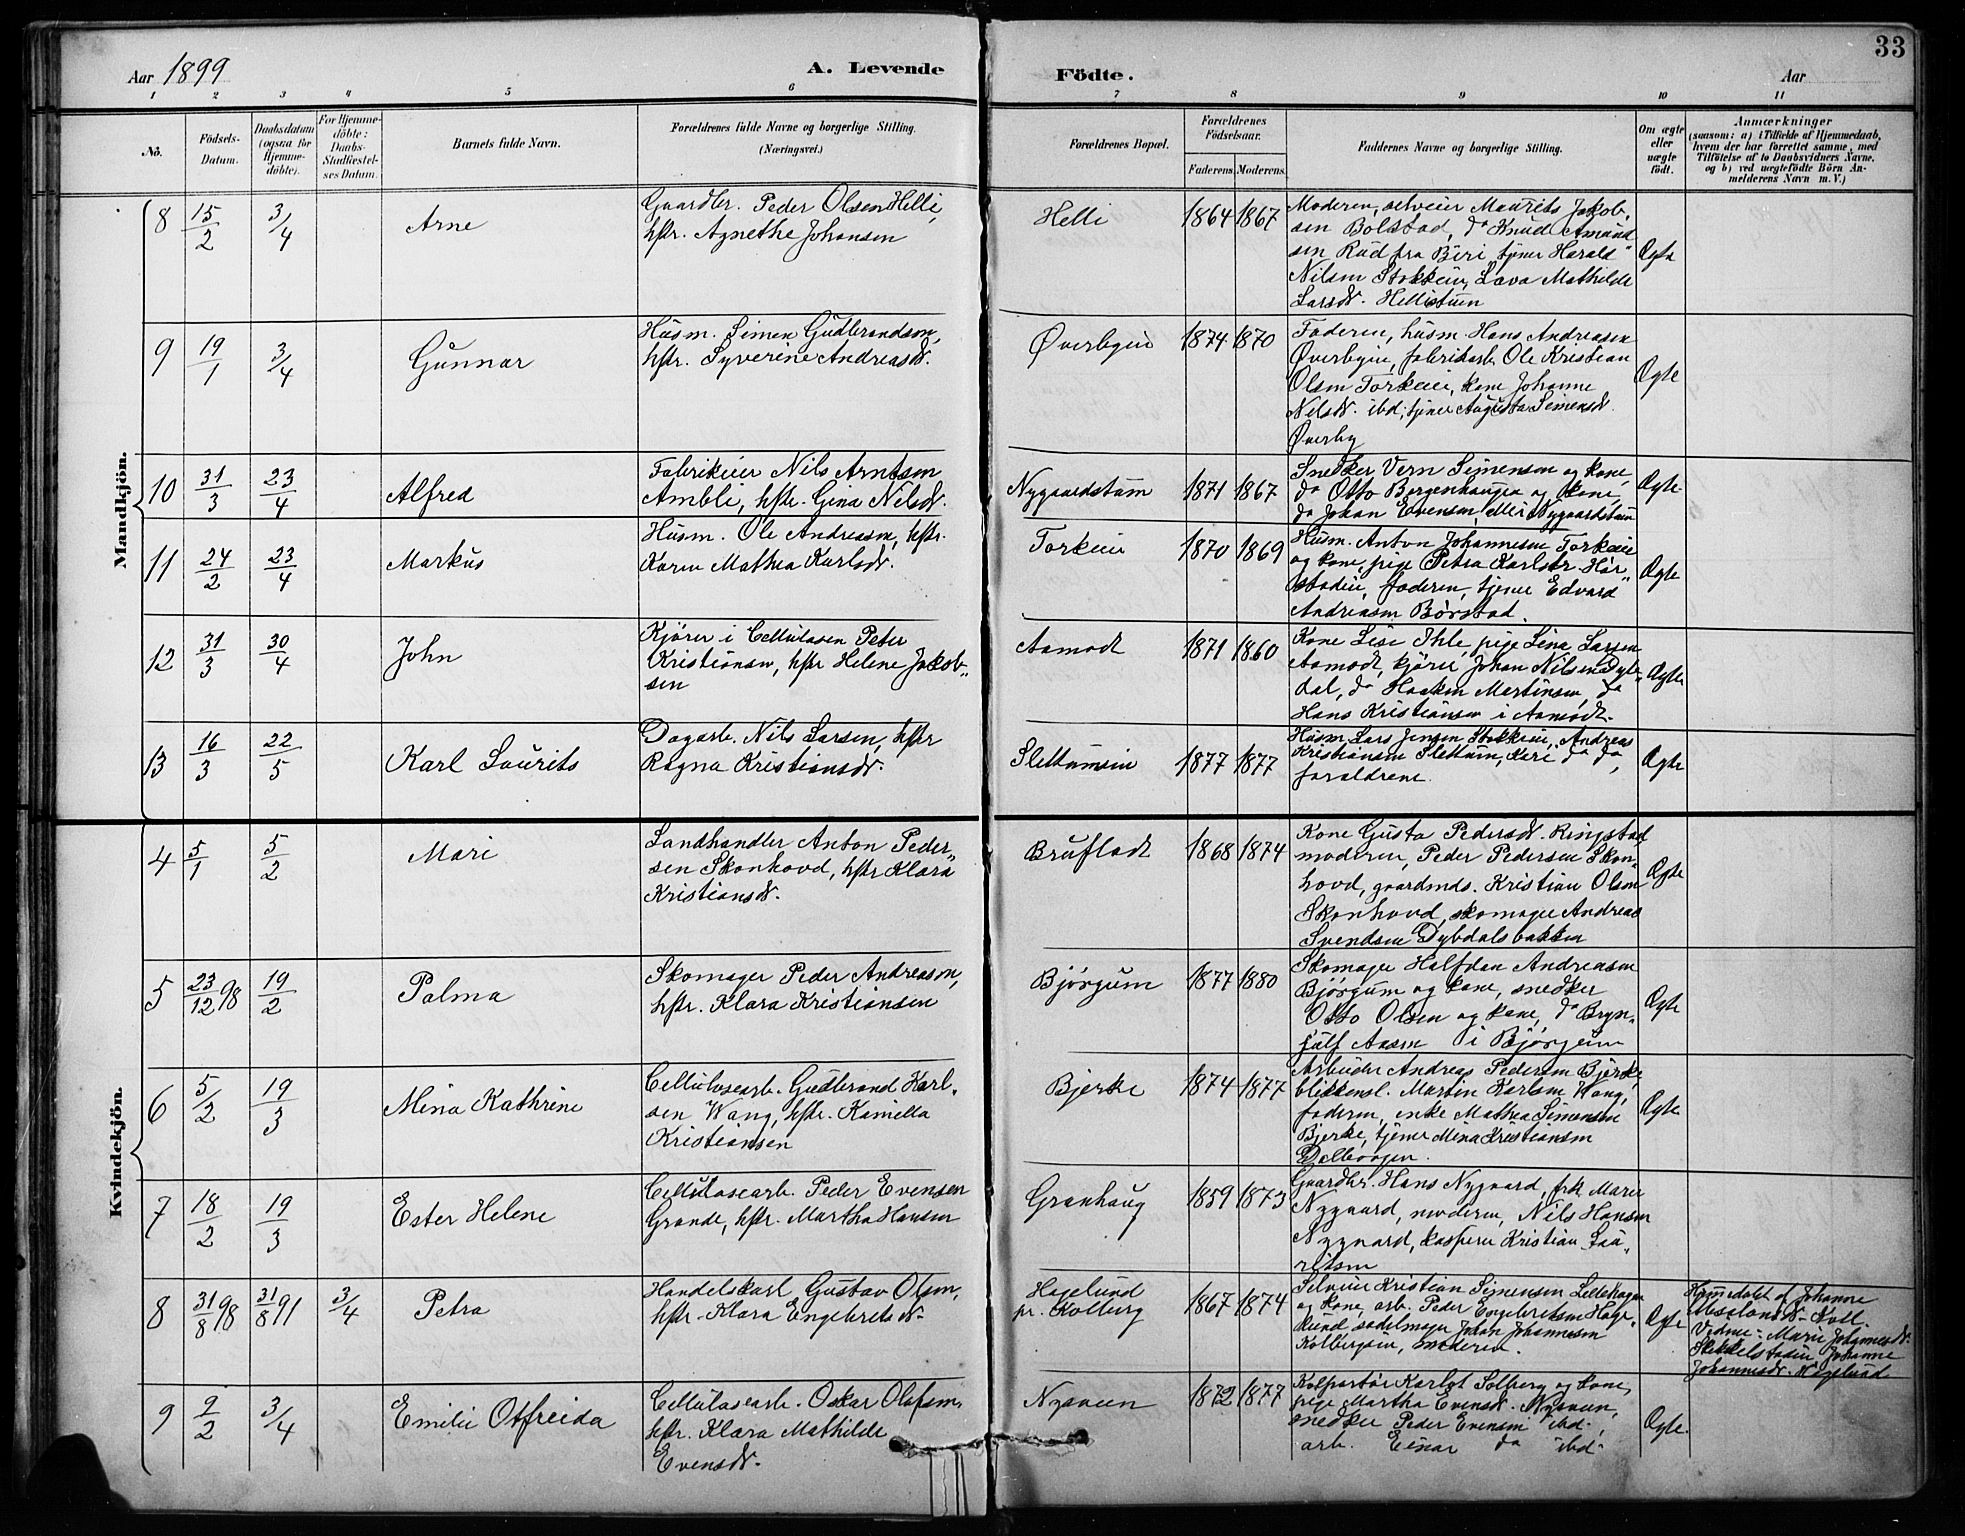 33
Aar 1899
A. Levende
Födte.
Aar
1 2 3 4 5 6 7 8 9 10 11
No.
Födsels-
Datum.
Daabsdatum
(ogsaa for
Hjemme-
döbte).
For Hjemme-
döbte:
Daabs-
Stadfæstel-
ses Datum.
Barnets fulde Navn.
Forældrenes fulde Navne og borgerlige Stilling.
(Næringsvei.)
Forældrenes Bopæl.
Forældrenes
Födselsaar.
Faderens. Moderens.
Faddernes Navne og borgerlige Stilling.
Om ægte
eller
uægte
födt.
Anmærkninger
(saasom: a) i Tilfælde af Hjemmedaab,
hvem der har forrettet samme, med
Tilföielse af to Daabsvidners Navne,
og b) ved uægtefödte Börn An-
melderens Navn m. V.)
Mandkjön.
8 15/2 3/4 Arne
Gaardbr. Peder Olsen Helli,
hstr. Agnethe Johansen
Helli 1864 1867
Moderen, selveier Maurits Jakob-
sen Bolstad, do Knud Amund
sen Rud fra Biri, tjener Harald
Nilsen Stokkeie, Lava Mathilde
Larsdt. Hellistuen
Ægte
9 19/1 3/4 Gunnar
Husm. Simen Gudbrandsen,
hstr. Syverine Andreasdt.
Øverbyeie 1874 1870
Faderen, husm. Hans Andreasen
Øverbyeie, fabrikarb. Ole Kristian
Olsen Torkeie, kone Johanne
Nilsdt. ibd; tjener Augusta Simensdt.
Øverby
Ægte
10 31/3 23/4 Alfred
Fabrikeier Nils Arntsen
Ambli, hstr. Gina Nilsdt.
Nygaardstuen 1871 1867
Snedker Vern Simensen og kone,
do Otto Bergenhaugen og kone,
do Johan Evensen, alle i Nygaardstuen
Ægte
11 24/2 23/4 Markus
Husm. Ole Andreasen, hstr.
Karen Mathea Karlsdt.
Torkeie 1870 1869
Husm. Anton Johannesen Torkeie
og kone, pige Petra Karlsdr. Hør-
stadeie, faderen, tjener Edvard
Andreasen Børstad.
Ægte
12 31/3 30/4 John
Kjører i Cellulosen Peter
Kristiansen, hstr Helene Jakob-
sen
Aamodt 1871 1860
Kone Lise Ihle, pige Lina Larsen
Aamodt, kjører Johan Nilsen Dyb-
dal, do Haaken Martinsen, do
Hans Kristiansen i Aamodt.
Ægte
13 16/3 22/5 Karl Laurits
Dagarb. Nils Larsen, hstr
Ragna Kristiansdt.
Slettumeie 1877 1877
Husm. Lars Jensen Stokkeie, Andreas
Kristiansen Slettum, Kari do do,
forældrene.
Ægte
Kvindekjön.
4 5/1 5/2 Mari
Landhandler Anton Peder-
sen Skonhovd, hstr Klara
Kristiansdt.
Brufladt 1868 1874
Kone Gusta Pedersdt. Ringstad
moderen, Peder Pedersen Skon-
hovd, gaardmds. Kristian Olsen
Skonhovd, skomager Andreas
Svendsen Dybdalsbakken
Ægte
5 23/12 98 19/2 Palma
Skomager Peder Andreasen,
hstr. Klara Kristiansen
Bjørgum 1877 1880
Skomager Halfdan Andreasen
Bjørgum og kone, snedker
Otto Olsen og kone, do Bryn-
julf Aasen i Bjørgum
Ægte
6 5/2 19/3 Mina Kathrine
Cellulosearb. Gudbrand Karl-
sen Wang, hstr. Kamilla
Kristiansen
Bjerke 1874 1877
Arbeider Andreas Pedersen Bjerke
blikkensl. Martin Karlsen Wang,
faderen, enke Mathea Simensen
Bjerke, tjener Mina Kristiansen
Ægte
7 18/2 19/3 Ester Helene
Cellulosearb. Peder Evensen
Grande, hstr. Martha Hansen
Granhaug 1859 1873
Gaardbr. Hans Nygaard, frk. Marie
Nygaard, moderen, Nils Hansen
Nygaard, Kasper Kristian Lau-
ritsen
8 31/8 98 31/8 91 3/4 Petra
Handelskarl Gustav Olsen,
hstr. Klara Engebretsdt.
Hagelund
pr. Kolberg 1867 1874
Selveier Kristian Simensen Lillehagen
og kone, arb. Peder Engebretsen Hage-
lund, sadelmager Johan Johannesen
Kolbergeie, moderen.
Ægte
Hjemedøbt af Johanne
Vidner: Marie Johannesdt.
Johanne
Johannesdt. Hagelund
9 9/2 3/4 Emilie Otfreida
Cellulosearb. Oskar Olafsen,
hstr. Klara Mathilde
Evensdt.
Nysveen 1872 1877
Kolportør Karl Solberg og kone,
pige Martha Evensdt. Nysveen,
snedker Peder Evensen ibd.,
arb. Einar do ibd.
Ægte.